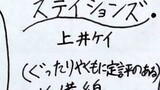 ステイションズ。
上井ケイ
(ぐったりやくもに定評のある)